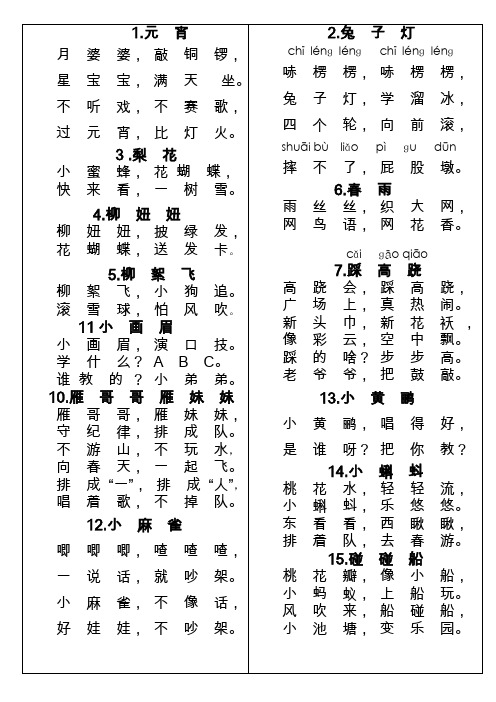 1.元 宵
月 婆 婆，敲 铜 锣，
星 宝 宝，满 天 坐。
不 听 戏，不 赛 歌，
过 元 宵，比 灯 火。
3.梨 花
小 蜜 蜂，花 蝴 蝶，
快 来 看，一 树 雪。
4.柳 妞 妞
柳 妞 妞，披 绿 发，
花 蝴 蝶，送 发 卡。
5.柳 絮 飞
柳 絮 飞，小 狗 追。
滚 雪 球，怕 风 吹。
11小 画 眉
小 画 眉，演 口 技。
学 什 么？A B C。
谁 教 的？小 弟 弟。
10.雁 哥 哥 雁 妹 妹
雁 哥 哥，雁 妹 妹，
守 纪 律，排 成 队。
不 游 山，不 玩 水，
向 春 天，一 起 飞。
排 成 “一”，排 成 “人”，
唱 着 歌，不 掉 队。
12.小 麻 雀
唧 唧 唧，喳 喳 喳，
一 说 话，就 吵 架。
小 麻 雀，不 像 话，
好 娃 娃，不 吵 架。
2.兔 子 灯
chī léng léng chī léng léng
哧 楞 楞，哧 楞 楞，
兔 子 灯，学 溜 冰，
四 个 轮，向 前 滚，
shuāi bù liǎo pì gu dūn
摔 不 了，屁 股 墩。
6.春 雨
雨 丝 丝，织 大 网，
网 鸟 语，网 花 香。
cǎi gāo qiāo
7.踩 高 跷
高 跷 会，踩 高 跷，
广 场 上，真 热 闹。
新 头 巾，新 花 袄，
像 彩 云，空 中 飘。
踩 的 啥？步 步 高。
老 爷 爷，把 鼓 敲。
13.小 黄 鹂
小 黄 鹂，唱 得 好，
是 谁 呀？把 你 教？
14.小 蝌 蚪
桃 花 水，轻 轻 流，
小 蝌 蚪，乐 悠 悠。
东 看 看，西 瞅 瞅，
排 着 队，去 春 游。
15.碰 碰 船
桃 花 瓣，像 小 船，
小 蚂 蚁，上 船 玩。
风 吹 来，船 碰 船，
小 池 塘，变 乐 园。